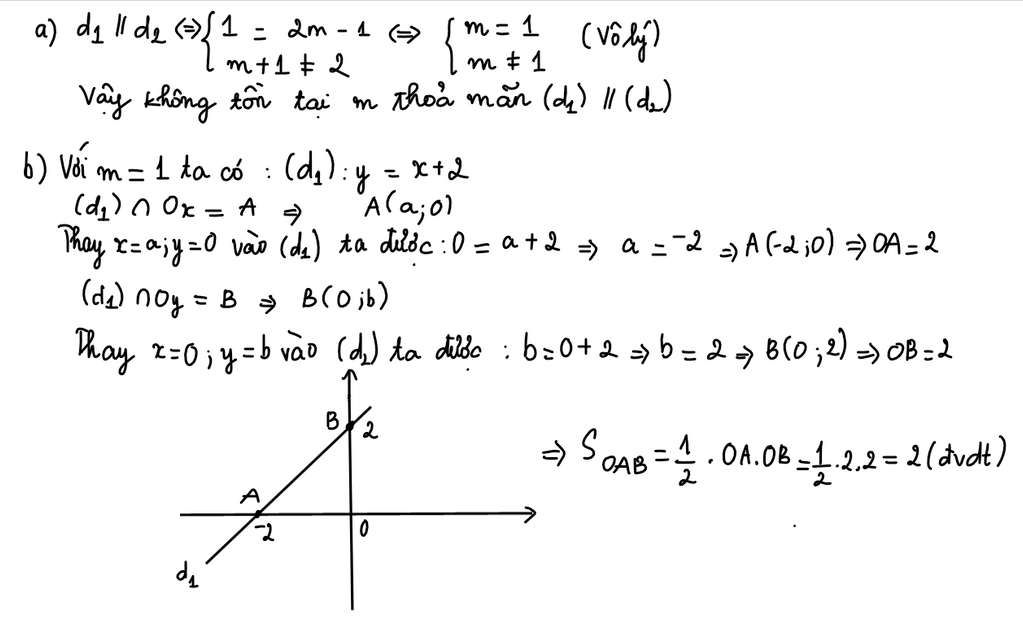 a) d₁ // d₂ ⇔ { 1 = 2m - 1 ⇔ { m = 1 (Vô lý)
m + 1 ≠ 2 m ≠ 1
Vậy không tồn tại m thoả mãn (d₁) // (d₂)
b) Với m = 1 ta có : (d₁) : y = x + 2
(d₁) ∩ Ox = A ⇒ A(a;0)
Thay x=a; y=0 vào (d₁) ta được : 0 = a + 2 ⇒ a = -2 ⇒ A(-2;0) ⇒ OA = 2
(d₁) ∩ Oy = B ⇒ B(0;b)
Thay x=0; y=b vào (d₁) ta được : b = 0 + 2 ⇒ b = 2 ⇒ B(0;2) ⇒ OB = 2
B 2
⇒ S_OAB = 1/2 . OA.OB = 1/2 .2.2 = 2 (đvdt)
A
-2 0
d₁